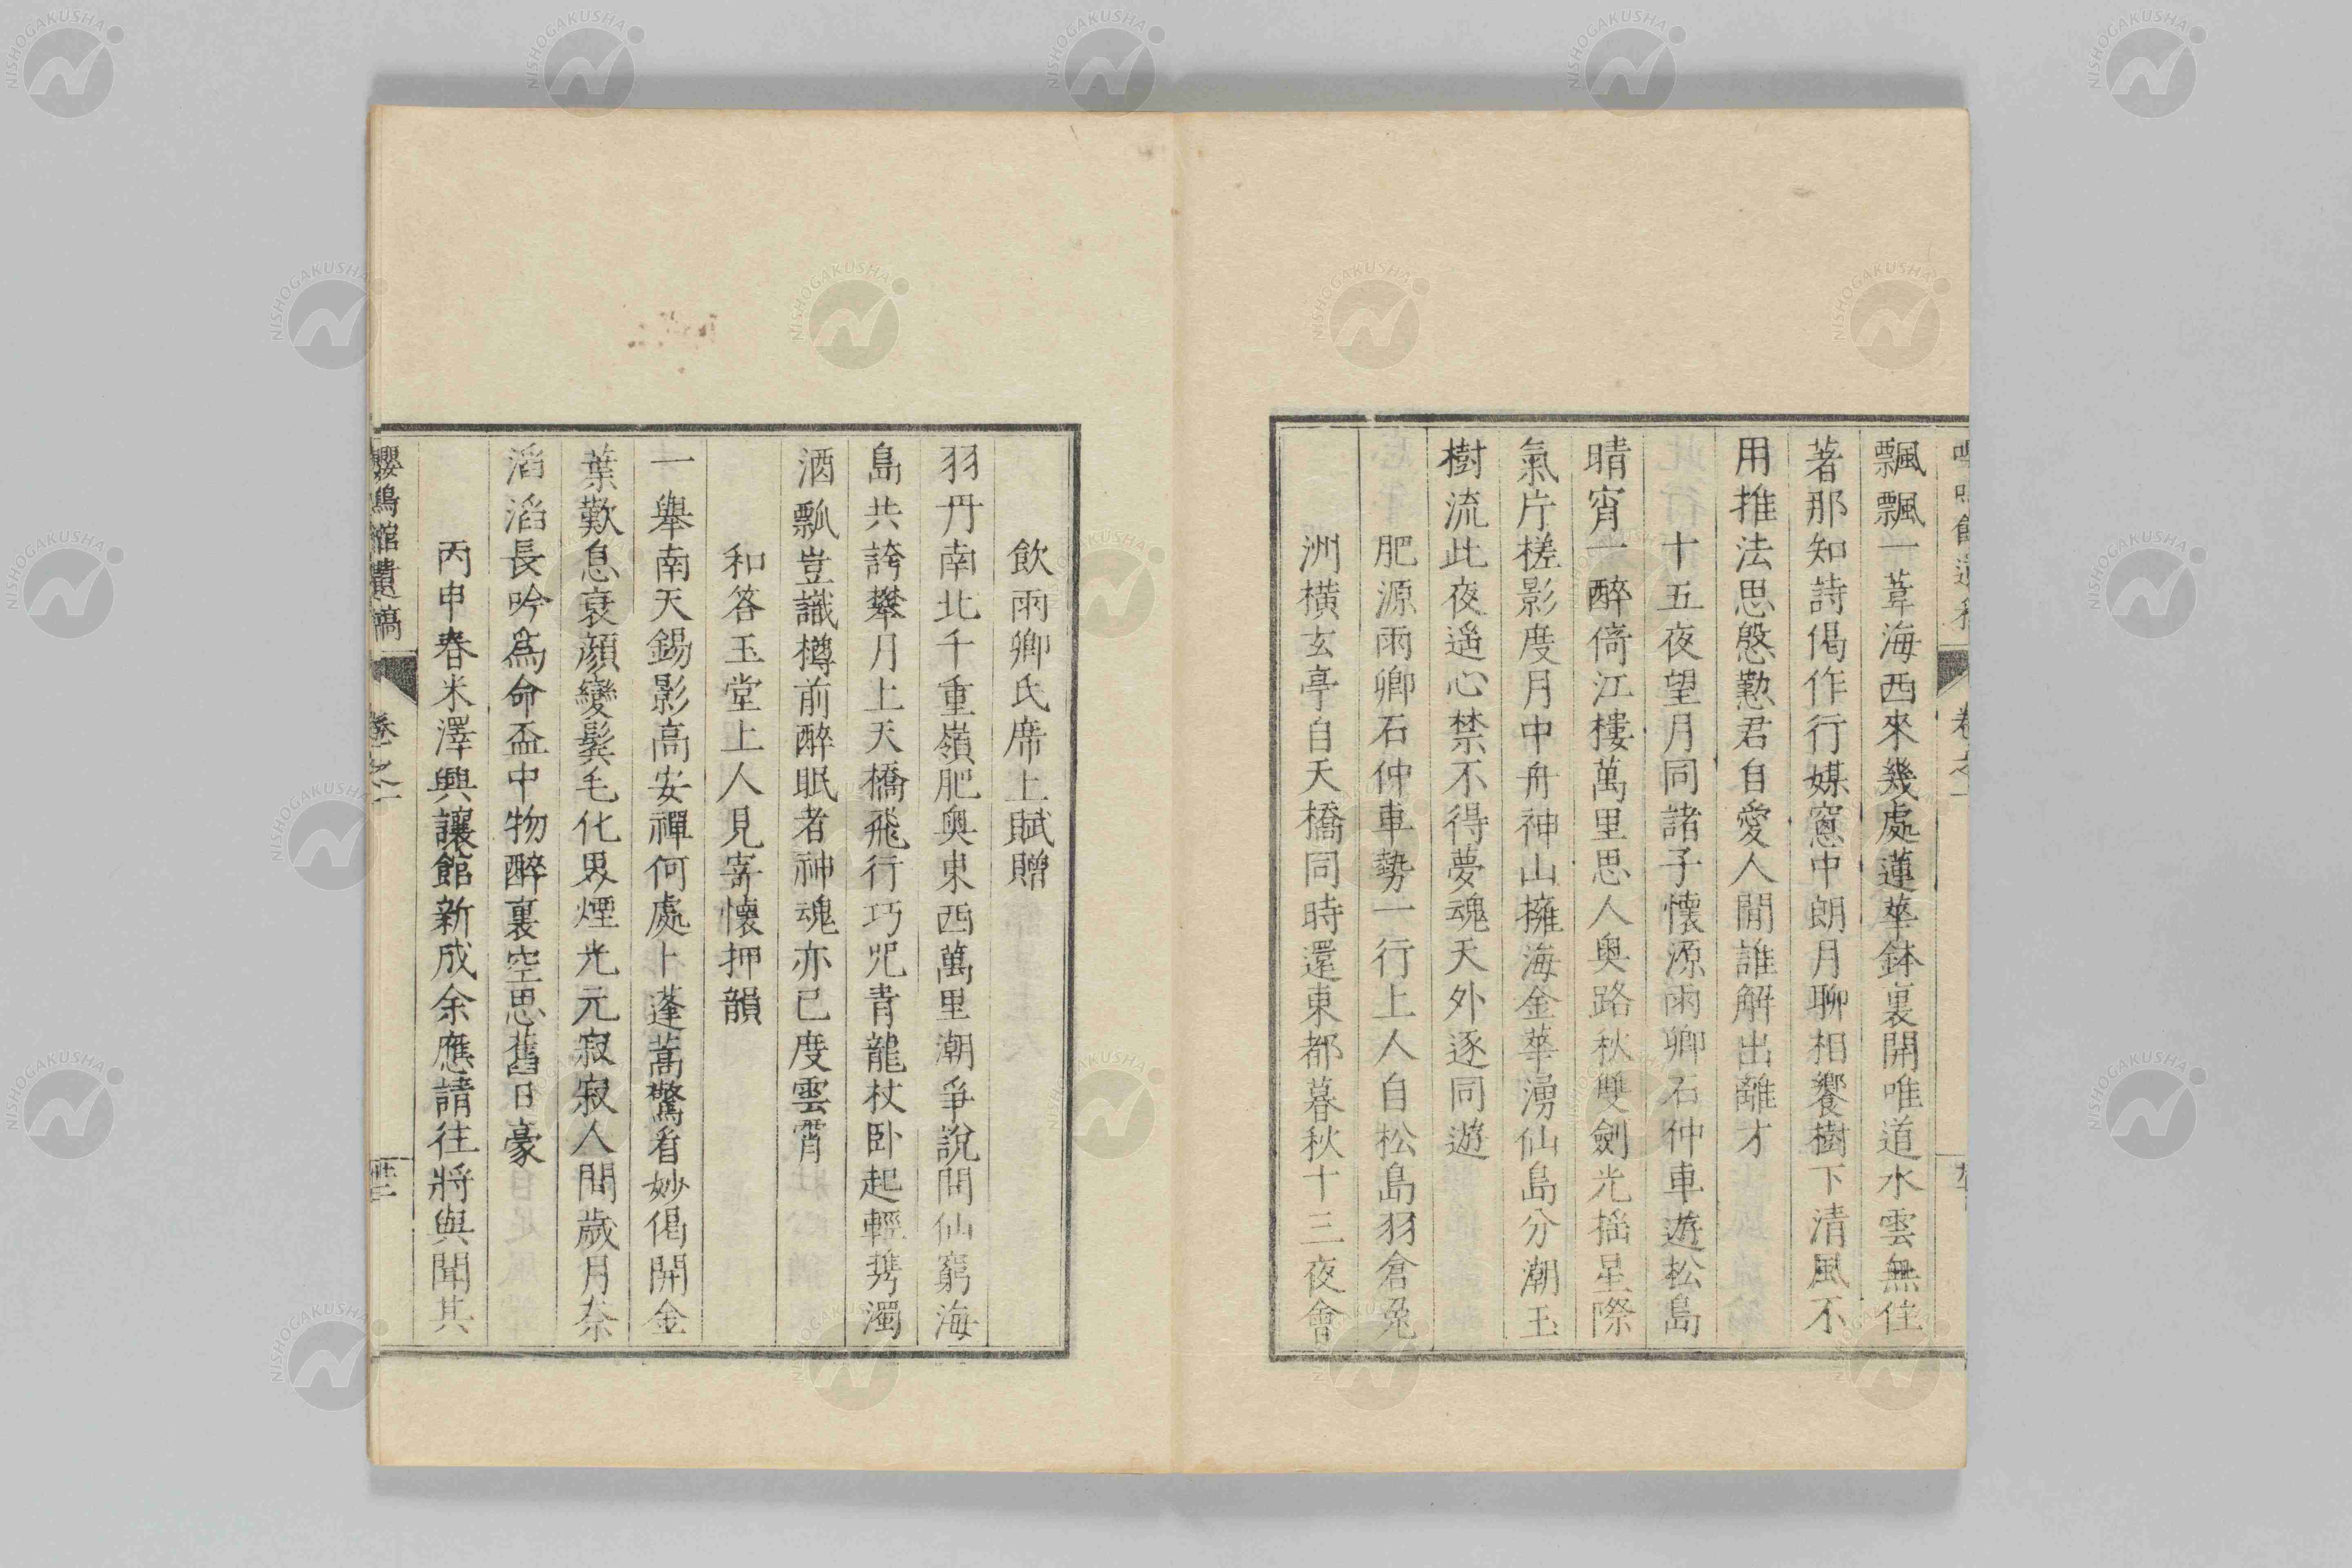 飄飄一葦海西來幾處蓮華鉢裏開唯道水雲無住
著那知詩偈作行媒窻中朗月聊相饗樹下清風不
用推法思慇懃君自愛人間誰解出離才
十五夜望月同諸子懷源雨卿石仲車遊松島
晴宵一醉倚江樓萬里思人奧路秋雙劍光搖星際
氣片槎影度月中舟神山擁海金華湧仙島分潮玉
樹流此夜遙心禁不得夢魂天外逐同遊
肥源雨卿石仲車勢一行上人自松島羽倉兔
洲橫玄亭自天橋同時還東都暮秋十三夜會
飲雨卿氏席上賦贈
羽丹南北千重嶺肥奧東西萬里潮爭說問仙窮海
島共誇攀月上天橋飛行巧咒青龍杖臥起輕携濁
酒瓢豈識樽前醉眠者神魂亦已度雲霄
和答玉堂上人見寄懷押韻
一舉南天錫影高安禪何處卜蓬蒿驚看妙偈開金
葉歎息衰顏變鬢毛化界煙光元寂寂人間歲月奈
滔滔長吟爲命盃中物醉裏空思舊日豪
丙申春米澤興讓館新成余應請往將與聞其
嚶鳴館遺稿 卷之一
NISHOGAKUSHA